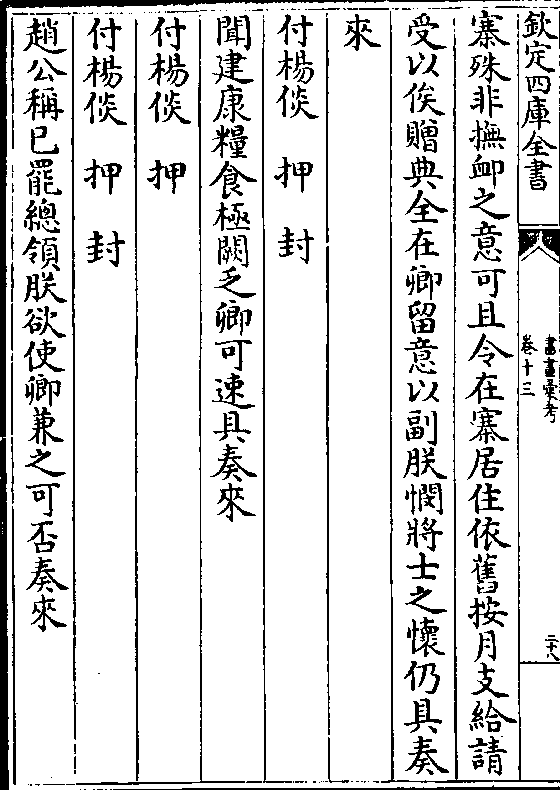 欽定四庫全書
書畫彙考
卷十三
二十八
寨殊非撫卹之意可且令在寨居住依舊按月支給請
受以俟贈典全在卿留意以副朕憫將士之懷仍具奏
來
付楊倓 押 封
聞建康糧食極闕乏卿可速具奏來
付楊倓 押
付楊倓 押 封
趙公稱已罷總領朕欲使卿兼之可否奏來